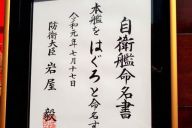 自衛艦命名書
本艦をはぐろと命名す
令和元年七月十七日
防衛大臣 岩屋 毅